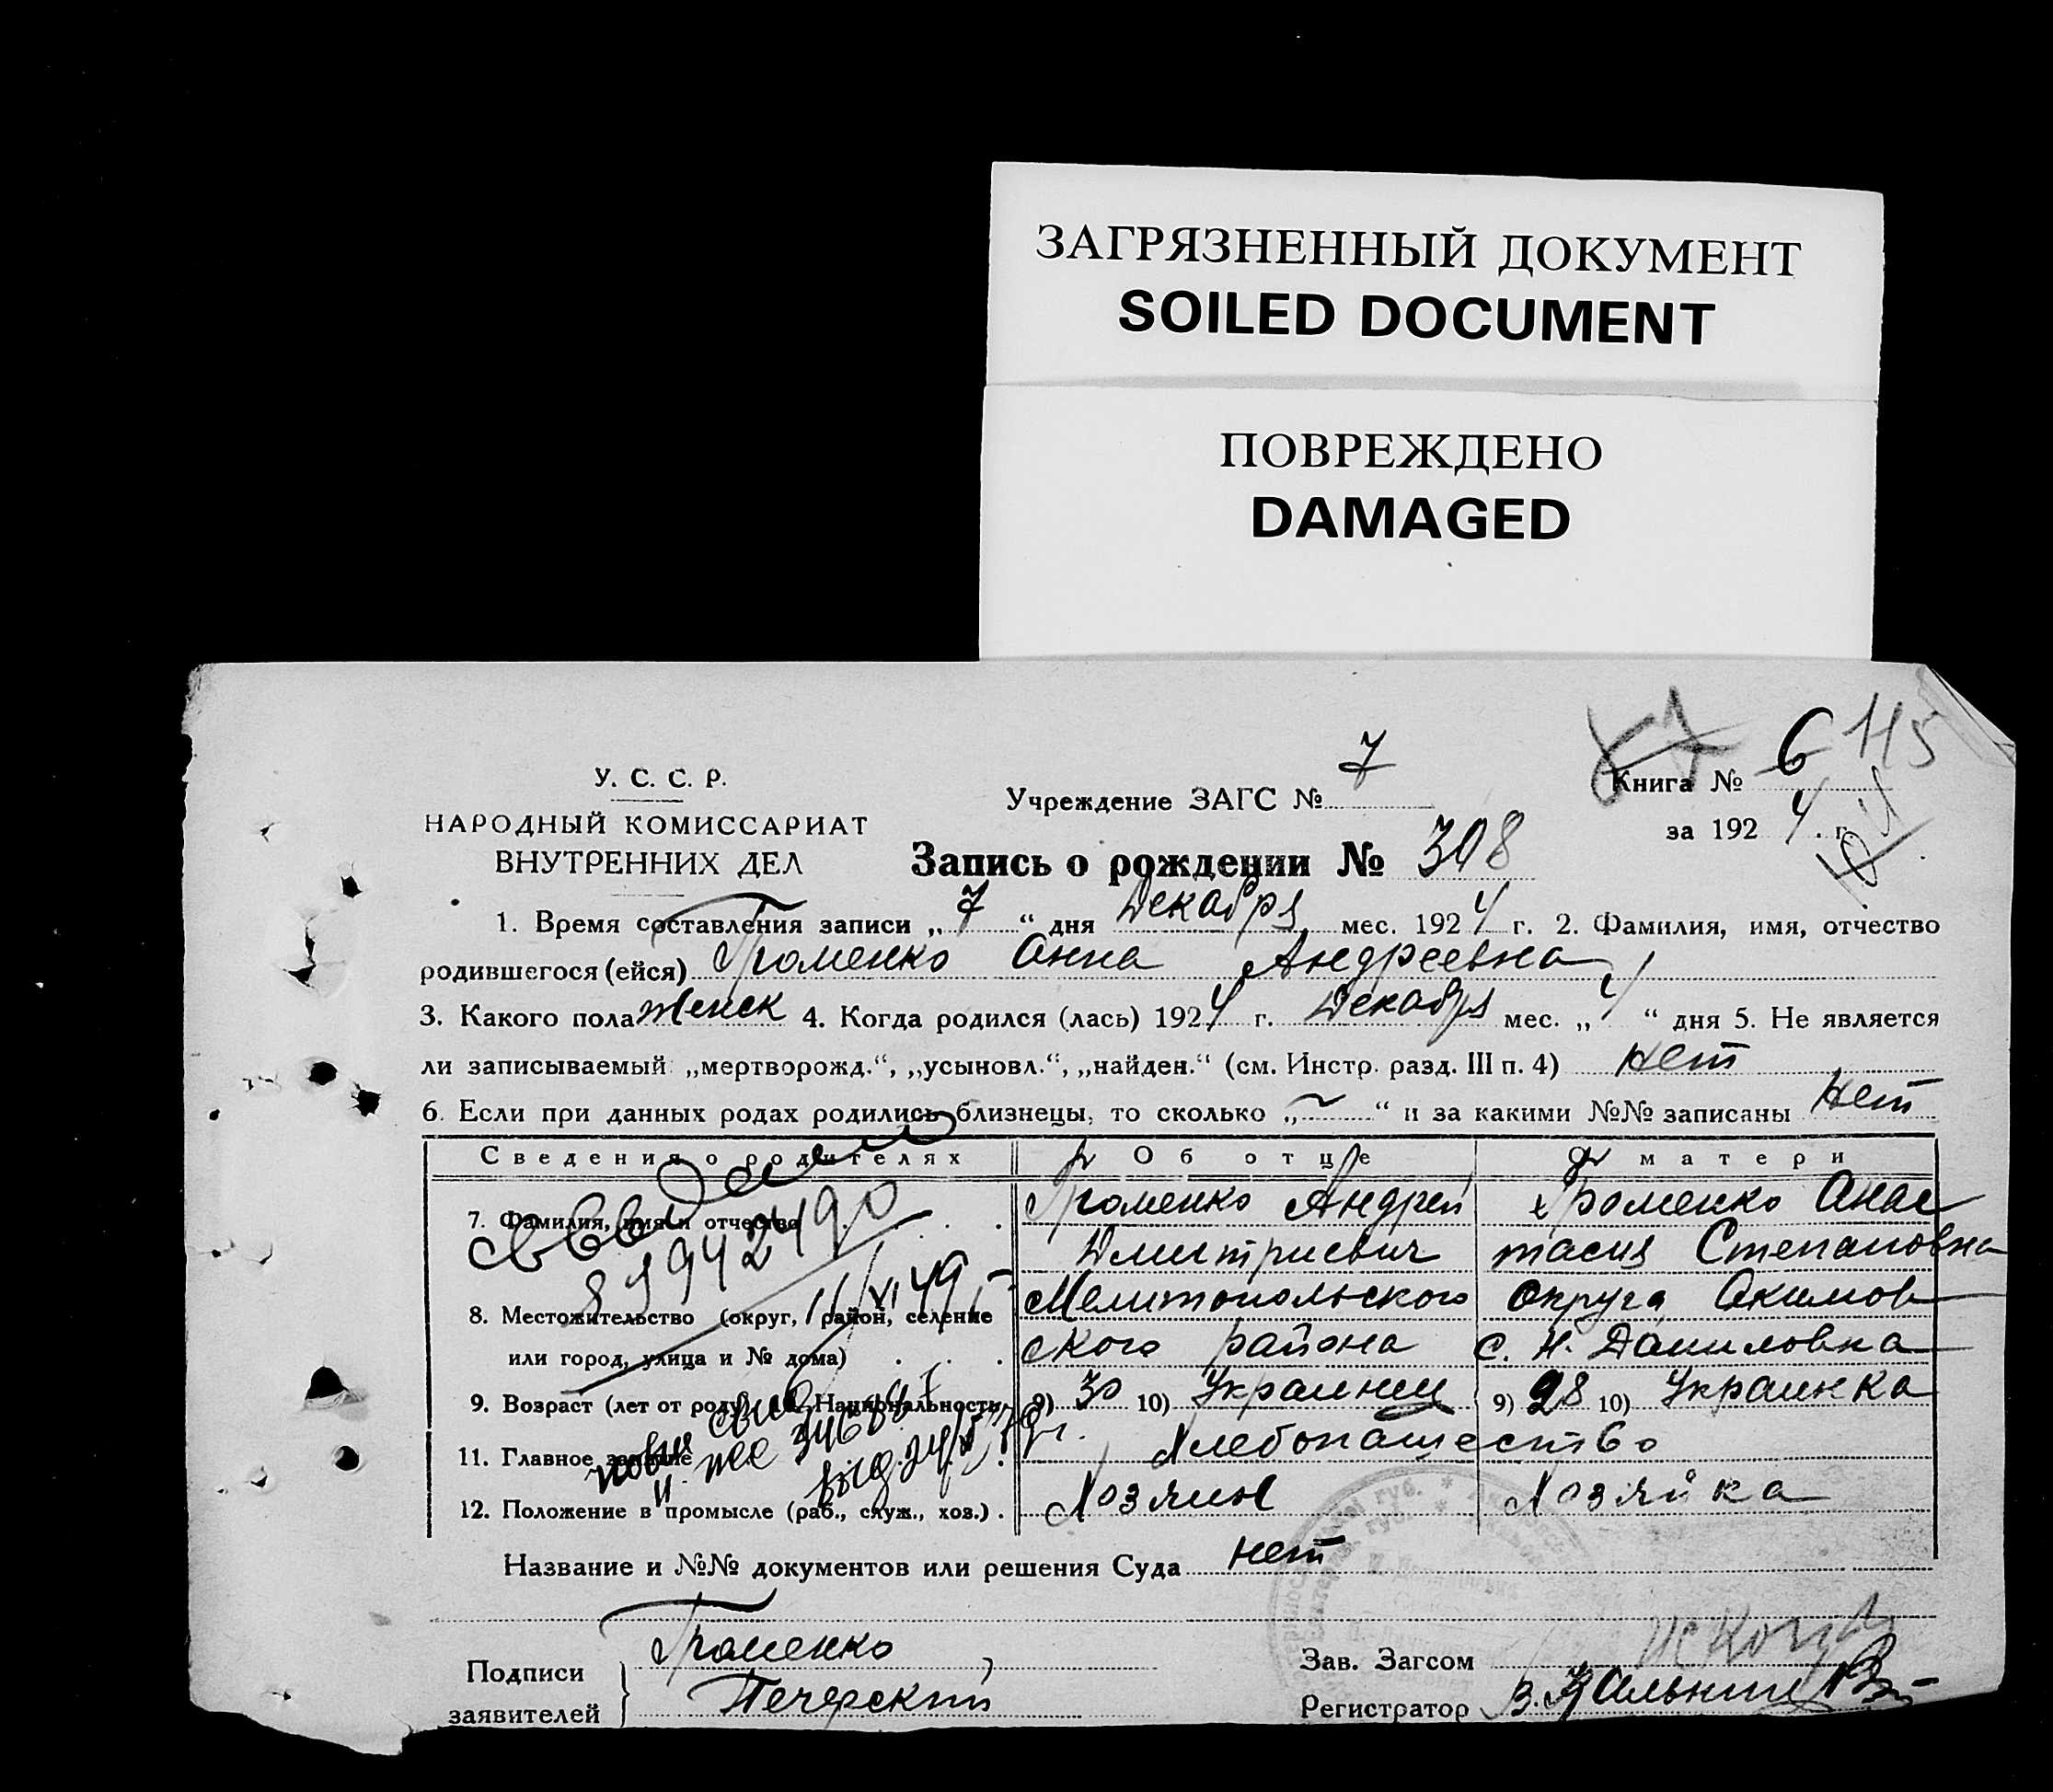 ЗАГРЯЗНЕННЫЙ ДОКУМЕНТ
SOILED DOCUMENT
ПОВРЕЖДЕНО
DAMAGED
6 115
У. С. С. Р.
Учреждение ЗАГС № 7
Книга №
НАРОДНЫЙ КОМИССАРИАТ
за 1924 г.
ВНУТРЕННИХ ДЕЛ
Запись о рождении № 308
1. Время составления записи „ 7 “ дня Декабря мес. 1924 г. 2. Фамилия, имя, отчество
родившегося (ейся) Громенко Анна Андреевна
3. Какого пола женск 4. Когда родился (лась) 1924 г. Декабря мес. „ 4 “ дня 5. Не является
ли записываемый „мертворожд.“, „усыновл.“, „найден.“ (см. Инстр. разд. III п. 4) нет
6. Если при данных родах родились близнецы, то сколько „ “ и за какими №№ записаны нет
Сведения о родителях Об отце О матери
7. Фамилия, имя и отчество Громенко Андрей Громенко Анас
Дмитриевич тасия Степановна
8. Местожительство (округ, район, селение Мелитопольского округа Акимов
или город, улица и № дома) ского района с. Н. Даниловка
9. Возраст (лет от роду) 10. Национальность 9) 30 10) Украинец 9) 28 10) Украинка
11. Главное занятие Хлебопашество
12. Положение в промысле (раб., служ., хоз.) Хозяин Хозяйка
Название и №№ документов или решения Суда нет
Подписи Громенко Зав. Загсом
заявителей Печерский Регистратор